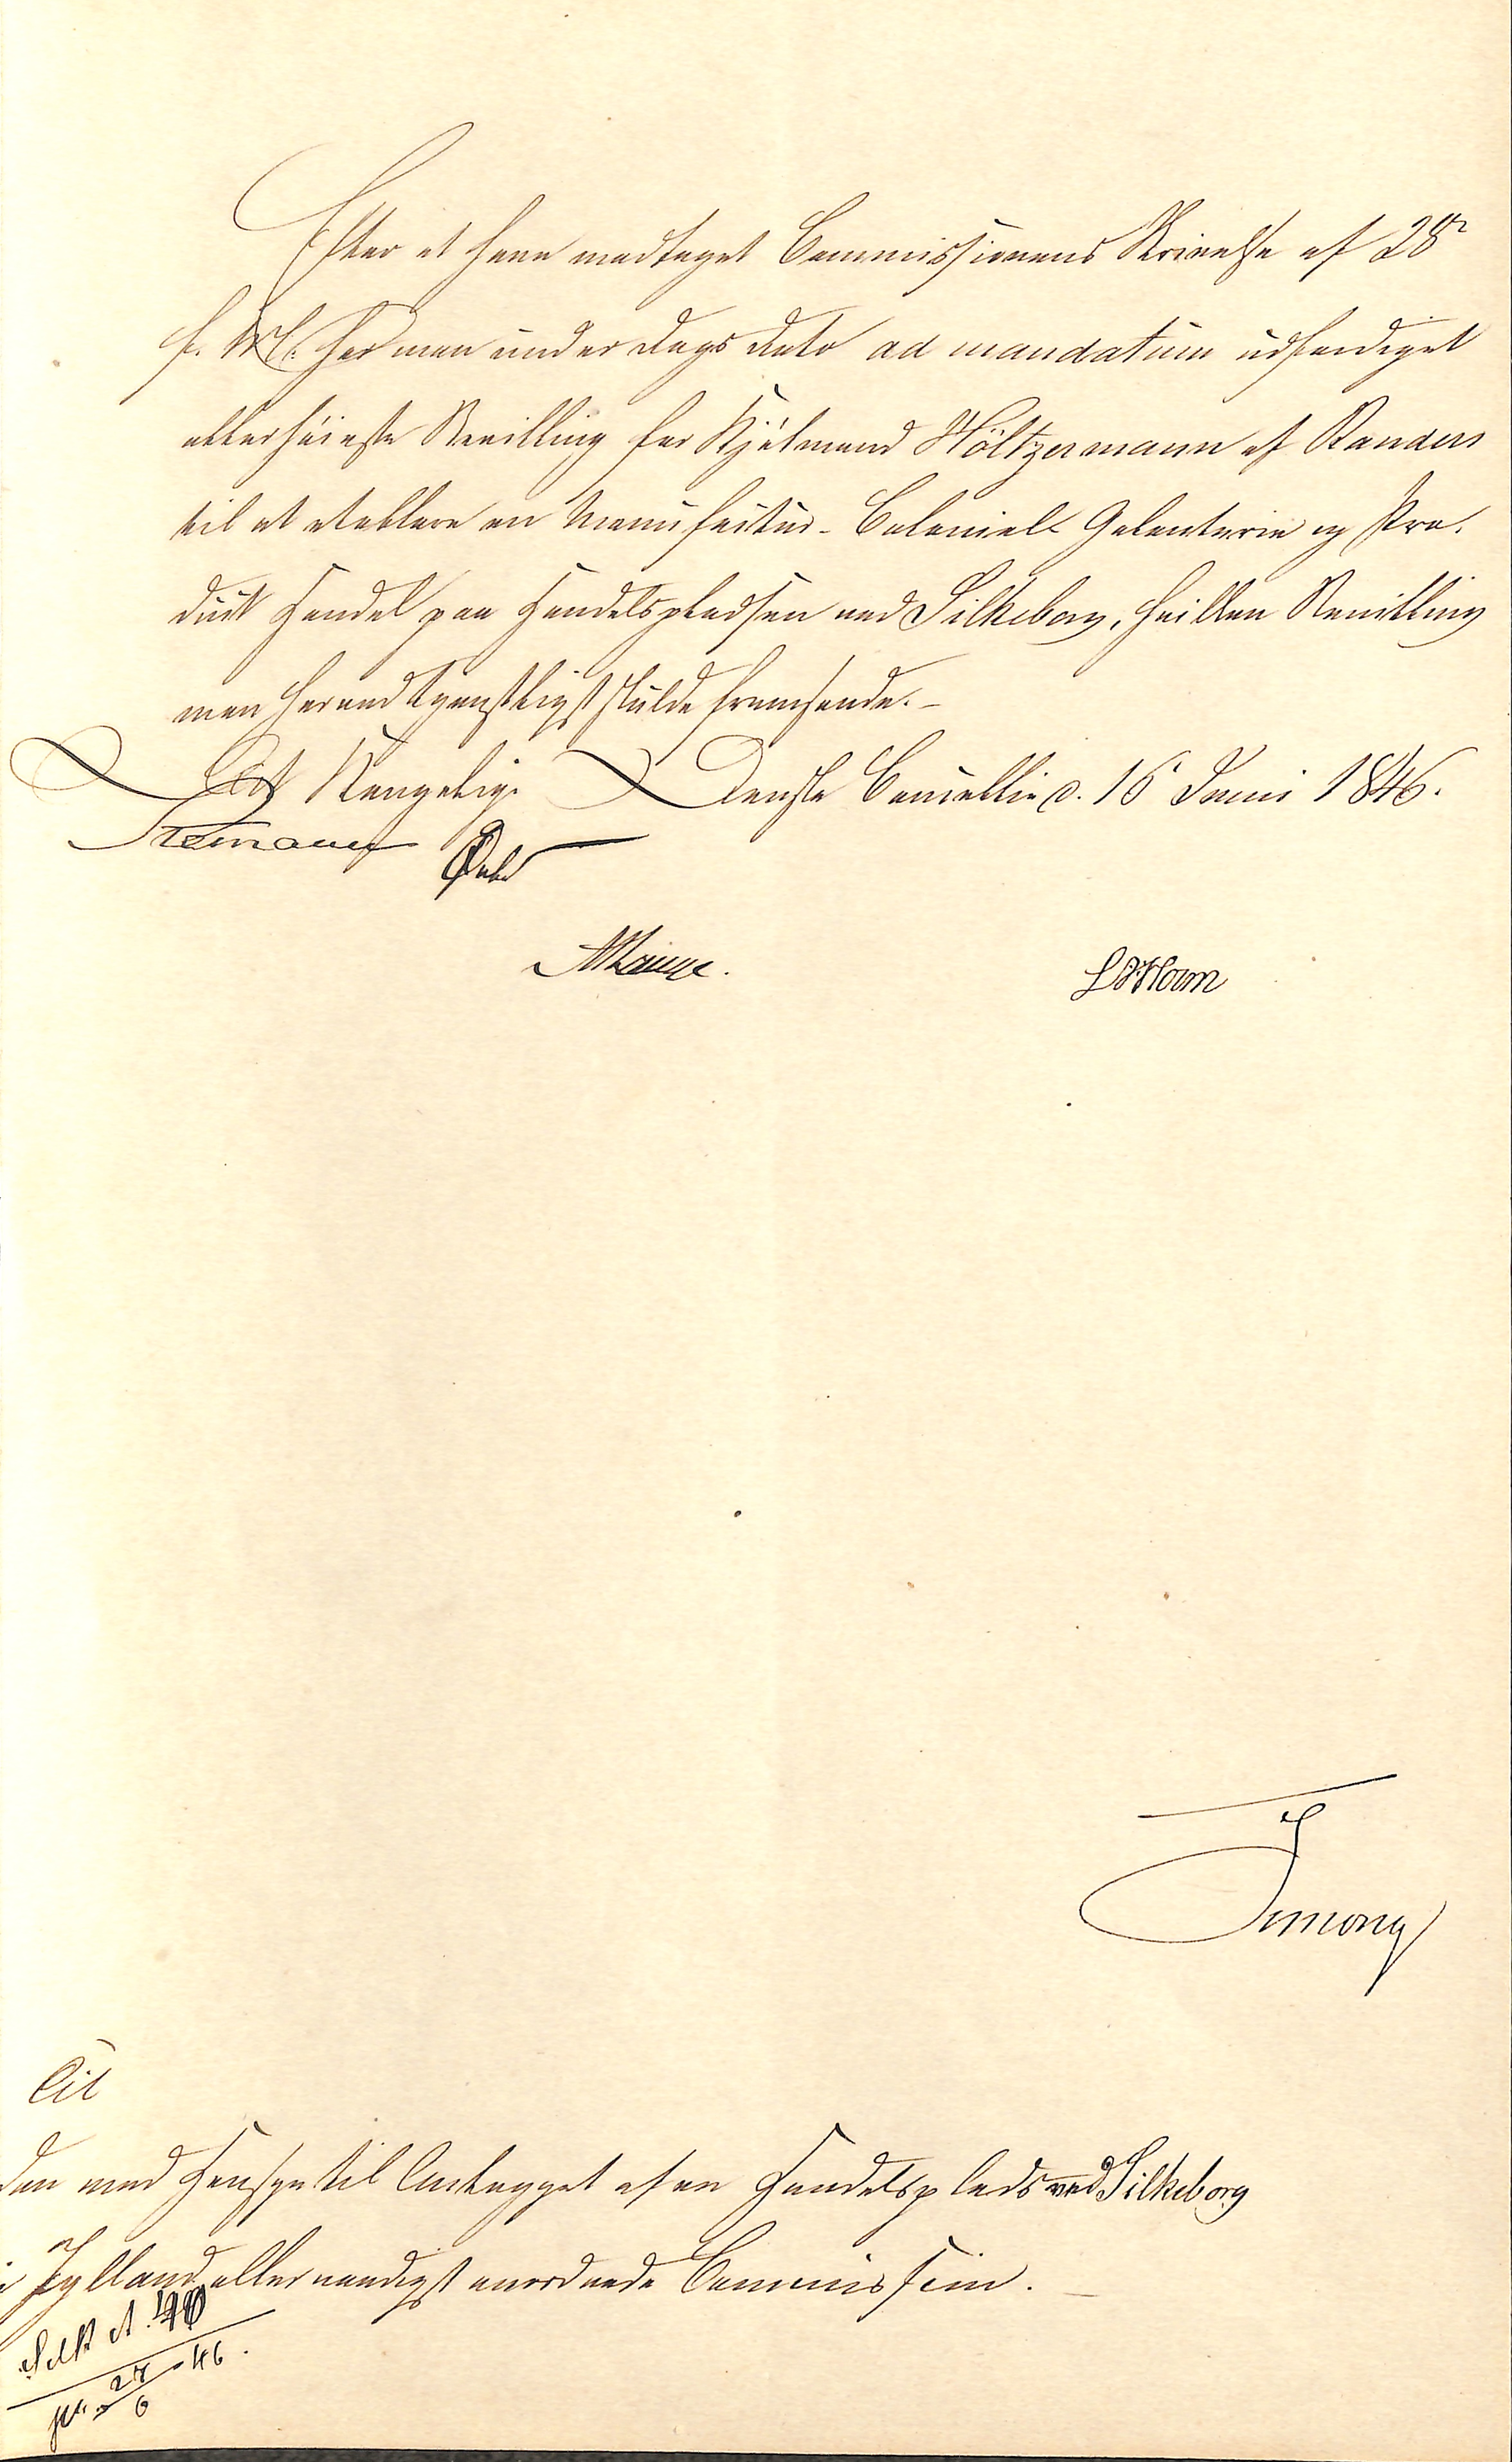 Efter at have modtaget Commissionens Skrivelse af 28de
f. M. har man under Dags Dato ad mandatum udfærdiget
allerhøieste Bevilling for Kjøbmand Höltzermann af Randers
til at etablere en Manufactur- Colonial- Galanterie og Pro-
duct Handel paa Handelspladsen ved Silkeborg, hvilken Bevilling
man herved tjenstligst skulde fremsende.-
Det Kongelige Danske Cancellie d. 16 Juni 1846.
Stemann Ørsted
Lange. Horn
Simony
Til
den med Hensyn til Anlægget af en Handelsplads ved Silkeborg
i Jylland allernaadigst anordnede Commission.
46.
6